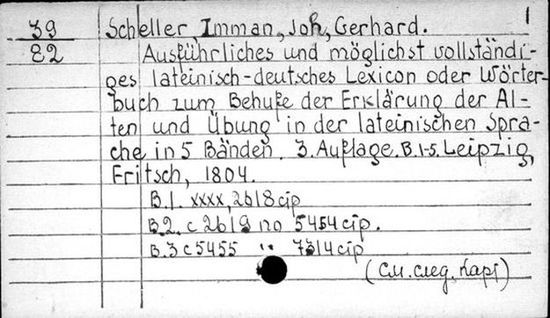 39 Scheller, Imman, Joh, Gerhard. 1
82 Ausführliches und möglichst vollständi-
ges lateinisch-deutsches Lexicon oder Wörter-
buch zum Behufe der Erklärung der Al-
ten und Übung in der lateinischen Spra-
che in 5 Bänden. 3. Auflage. B. 1-5. Leipzig,
Fritsch, 1804.
B.1. XXXX, 2618 стр
B.2. с 2619 по 5454 стр.
B.3 с 5455 " 7314 стр
(См. след. карт)